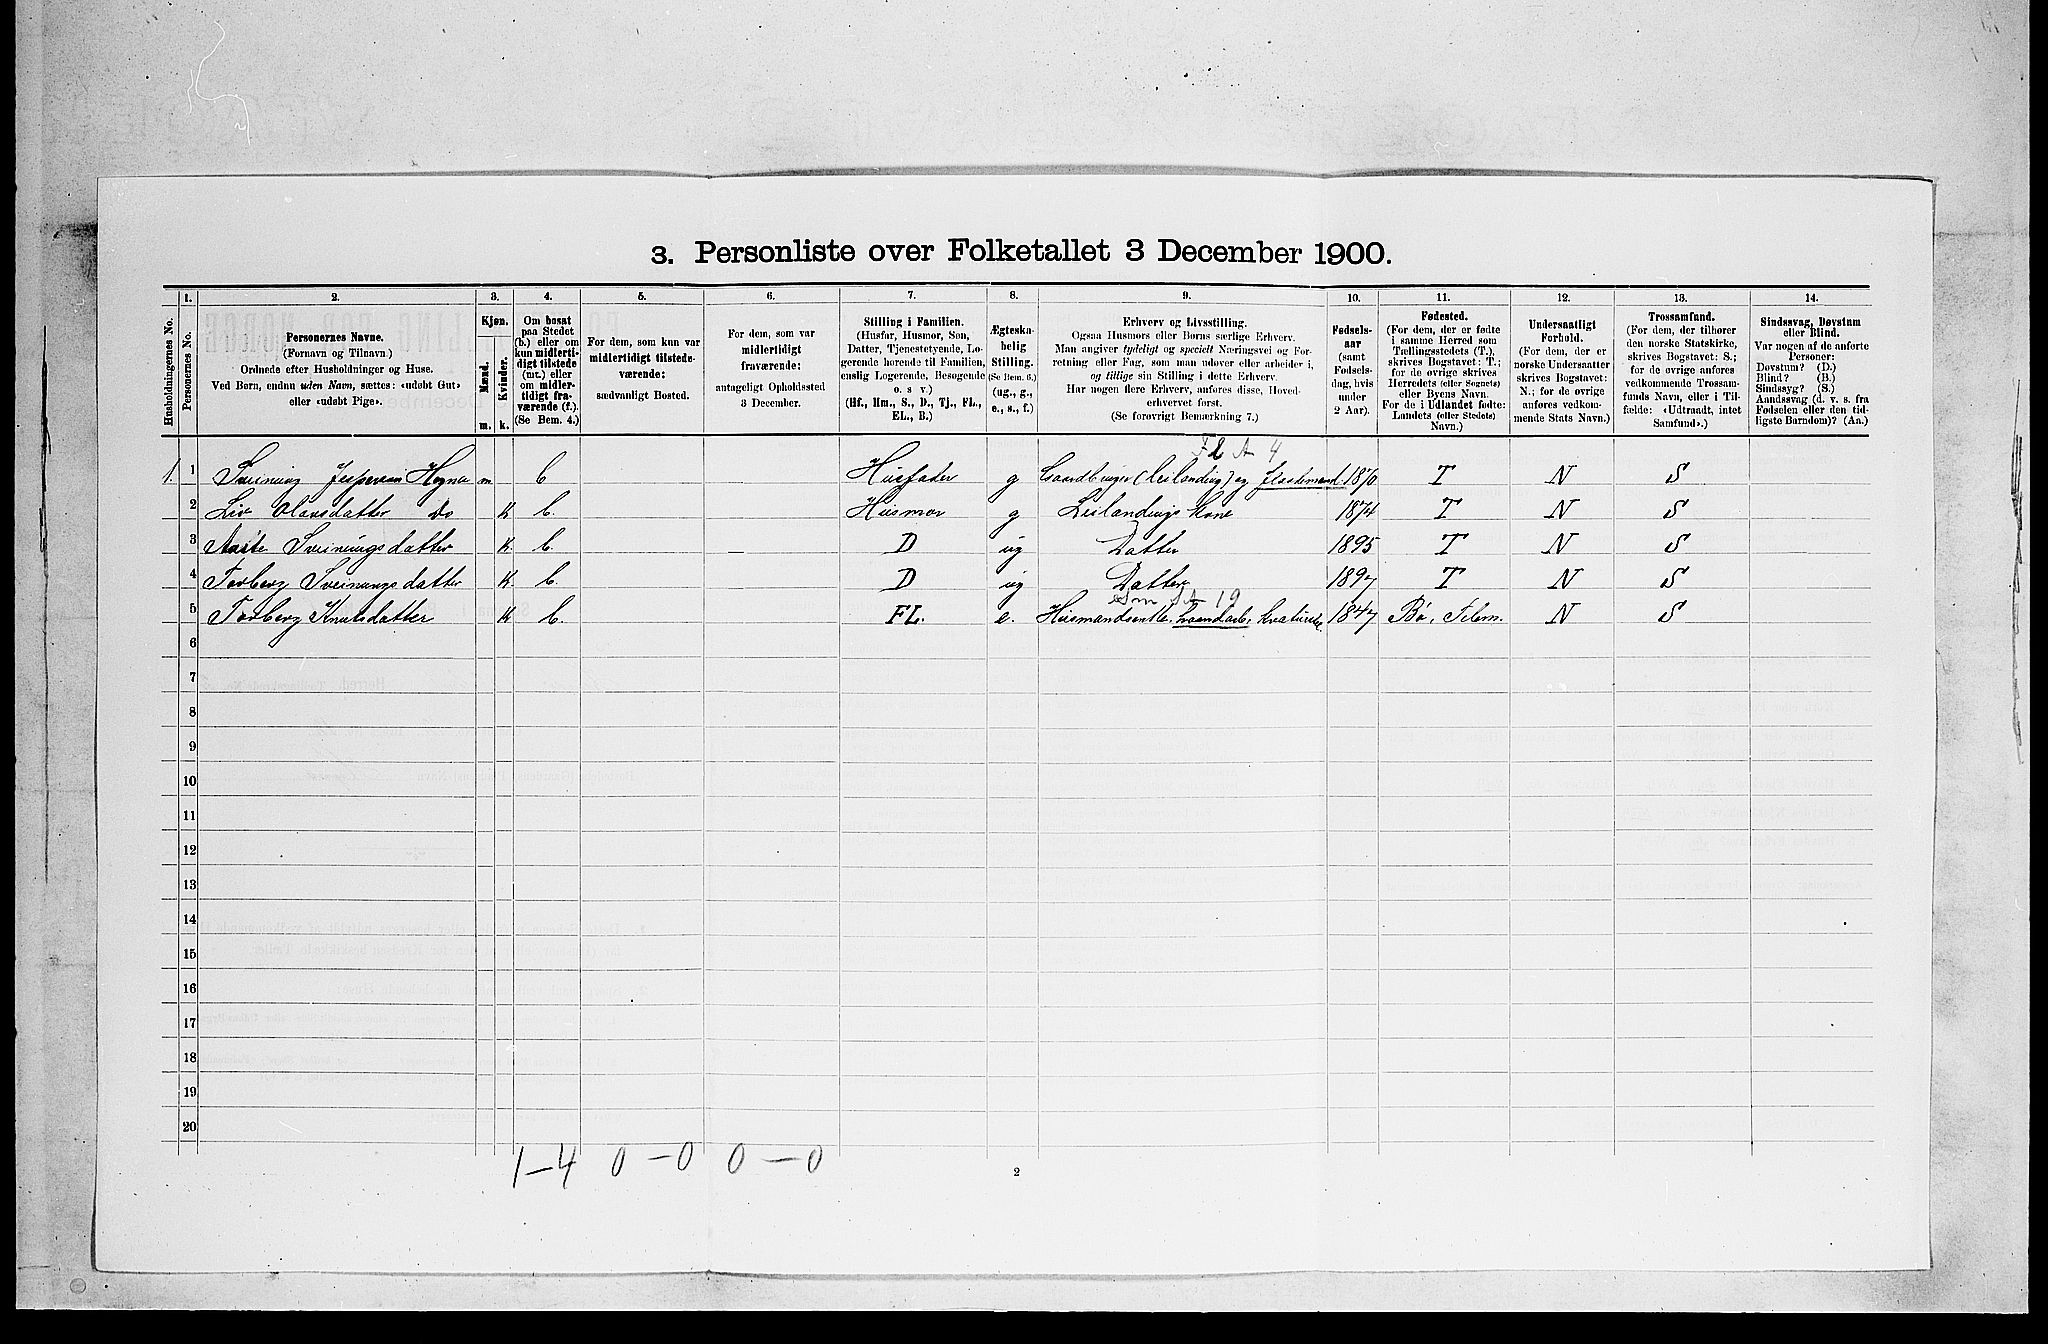 3. Personliste over Folketallet 3 December 1900.
1. 2. 3. 4. 5. 6. 7. 8. 9. 10. 11. 12. 13. 14.
Husholdningernes No.
Personernes No.
Personernes Navne.
(Fornavn og Tilnavn.)
Ordnede efter Husholdninger og Huse.
Ved Børn, endnu uden Navn, sættes: «udøbt Gut»
eller «udøbt Pige».
Kjøn.
Mænd.
Kvinder.
m. k.
Om bosat
paa Stedet
(b.) eller om
kun midlerti-
digt tilstede
(mt.) eller
om midler-
tidigt fra-
værende (f.).
(Se Bem. 4.)
For dem, som kun var
midlertidigt tilstede-
værende:
sædvanligt Bosted.
For dem, som var
midlertidigt
fraværende:
antageligt Opholdssted
3 December.
Stilling i Familien.
(Husfar, Husmor, Søn,
Datter, Tjenestetyende, Lo-
gerende hørende til Familien,
enslig Logerende, Besøgende
o. s. v.)
(Hf., Hm., S., D., Tj., FL.,
EL., B.)
Ægteska-
belig
Stilling.
(Se Bem. 6.)
(ug., g.,
e., s., f.)
Erhverv og Livsstilling.
Ogsaa Husmors eller Børns særlige Erhverv.
Man angiver tydeligt og specielt Næringsvei og For-
retning eller Fag, som man udøver eller arbeider i,
og tillige sin Stilling i dette Erhverv.
Har nogen flere Erhverv, anføres disse, Hoved-
erhvervet først.
(Se forøvrigt Bemærkning 7.)
Fødsels-
aar
(samt
Fødsels-
dag, hvis
under
2 Aar).
Fødested.
(For dem, der er fødte
i samme Herred som
Tællingsstedets (T.),
skrives Bogstavet: T.;
for de øvrige skrives
Herredets (eller Sognets)
eller Byens Navn.
For de i Udlandet fødte:
Landets (eller Stedets)
Navn.)
Undersaatligt
Forhold.
(For dem, der er
norske Undersaatter
skrives Bogstavet:
N.; for de øvrige
anføres vedkom-
mende Stats Navn.)
Trossamfund.
(For dem, der tilhører
den norske Statskirke,
skrives Bogstavet: S.;
for de øvrige anføres
vedkommende Trossam-
funds Navn, eller i Til-
fælde: «Udtraadt, intet
Samfund».)
Sindssvag, Døvstum
eller Blind.
Var nogen af de anførte
Personer:
Døvstum? (D.)
Blind? (B.)
Sindssyg? (S.)
Aandssvag (d. v. s. fra
Fødselen eller den tid-
ligste Barndom)? (Aa.)
Fl A 4
1. 1 Sveinung Jespersen Hogna m b Husfader g Gaardbruger (Leilending) og 1870 T N S
2 Liv Olavsdatter Do K b. Husmor g Leilendings Kone 1874 T N S
3 Aaste Sveinungsdatter K. b. D ug Datter 1895 T N S
4 Torberg Sveinungsdatter K b. D ug Datter 1897 T N S
A 19
5 Torberg Knutsdatter K b. FL. e. Husmandsenke, 1847 Bø, Telem. N S
6
7
8
9
10
11
12
13
14
15
16
17
18
19
20
1–4 0–0 0–0
2